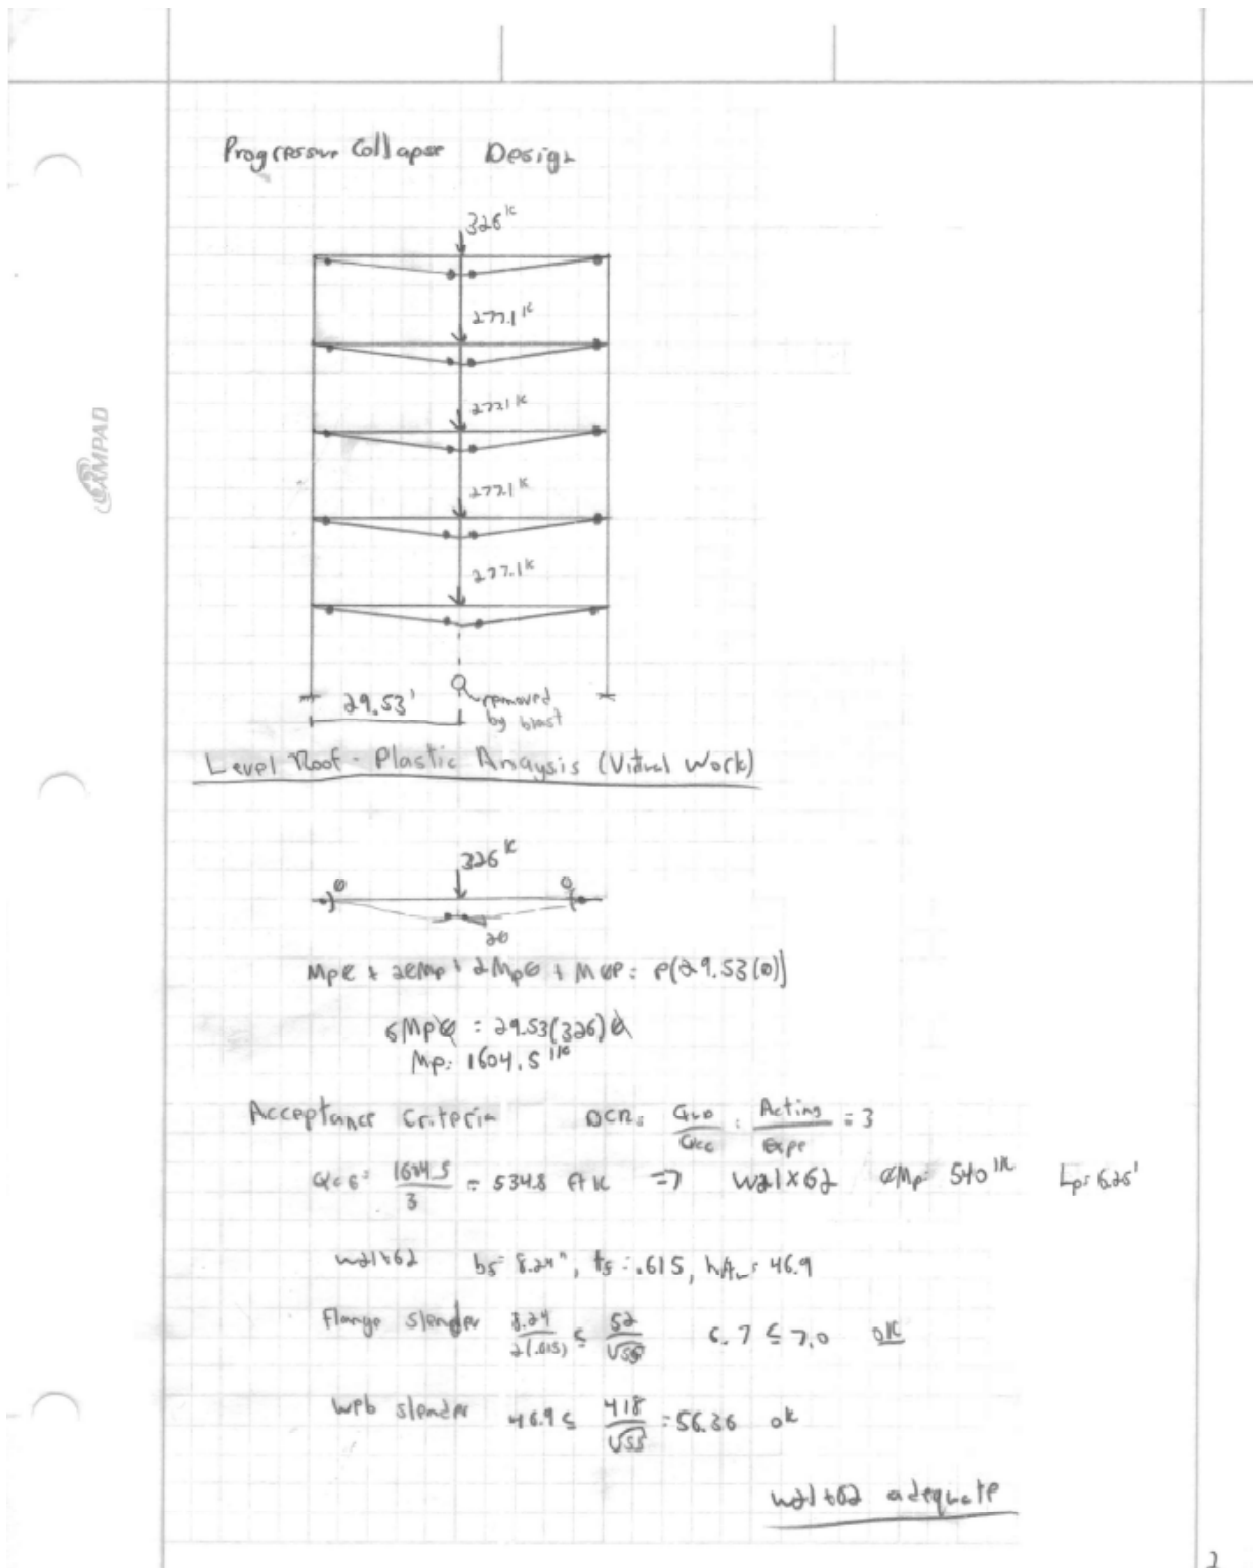 Progressive Collapse Design
326 K
277.1 K
277.1 K
277.1 K
277.1 K
AMPAD
29.53'
removed
by blast
Level Roof - Plastic Analysis (Virtual Work)
326 K
θ θ
2θ
Mpθ + 2θMp + 2Mpθ + Mθp = P(29.53(θ))
6Mpθ = 29.53(326)θ
Mp = 1604.5 'K
Acceptance Criteria DCR = = Acting = 3
1604.5 / 3 = 534.8 ft K => W21x62 ØMp = 540 'K Lp = 6.25'
W21x62 bf = 8.24", tf = .615, h/tw = 46.9
Flange slender 8.24 / 2(.615) ≤ 52 / √55 6.7 ≤ 7.0 OK
Web slender 46.9 ≤ 418 / √55 = 56.36 ok
W21x62 adequate
2